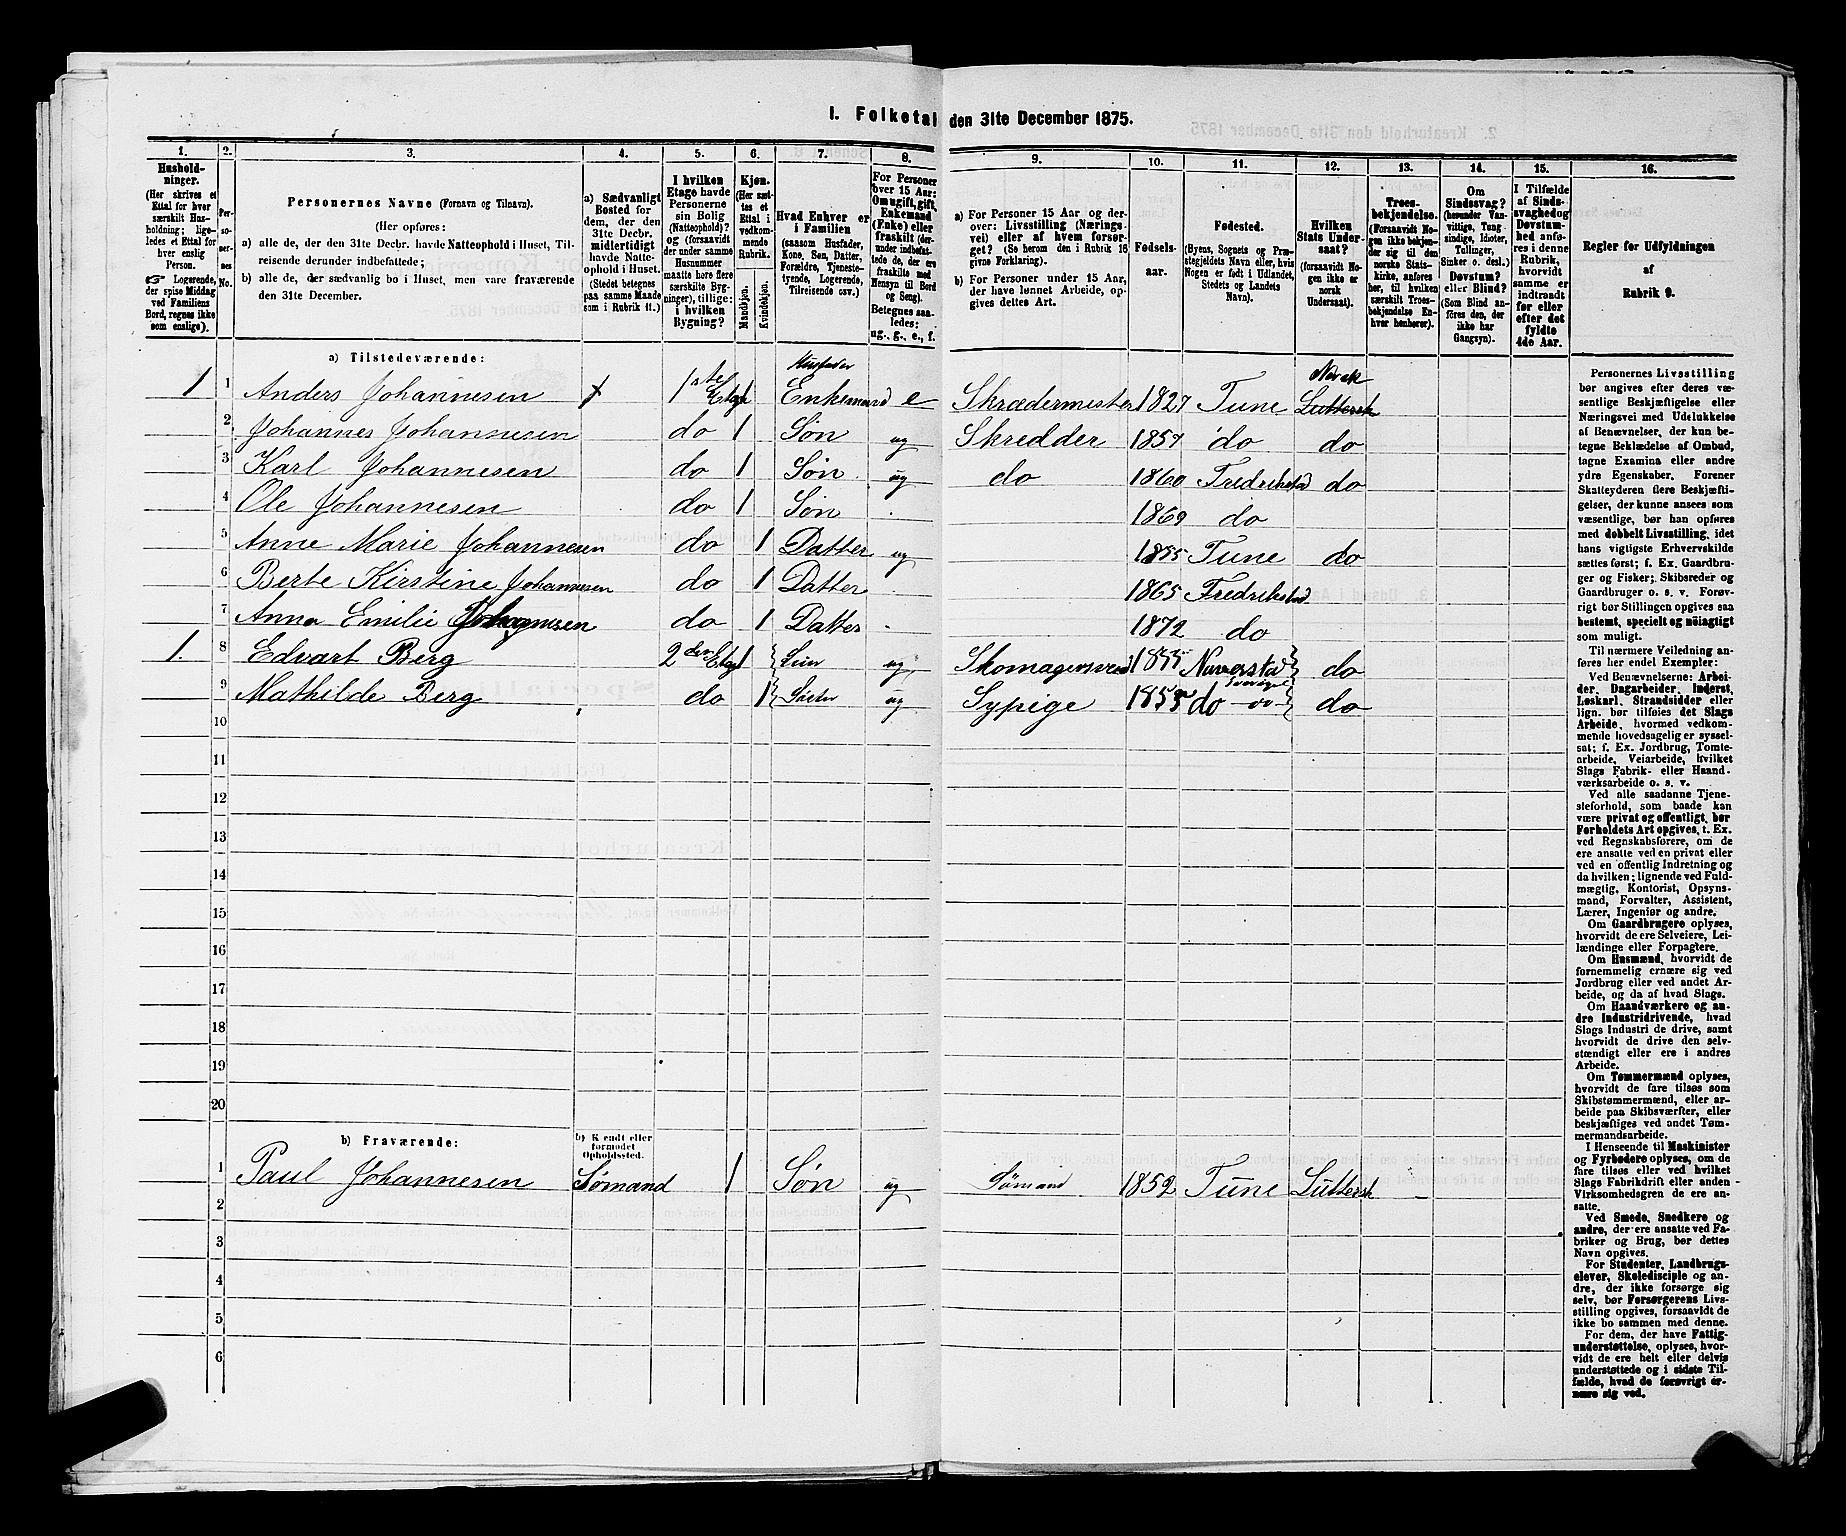 I. Folketal den 31te December 1875.
1. 2. 3. 4. 5. 6. 7. 8. 9. 10. 11. 12. 13. 14. 15. 16.
Husholdninger.
(Her skrives et Ettal for hver særskilt Husholdning; ligeledes et Ettal for hver enslig Person.
☞ Logerende, der spise Middag ved Familiens Bord, regnes ikke som enslige).
Personernes No.
Personernes Navne (Fornavn og Tilnavn).
(Her opføres:
a) alle de, der den 31te Decbr. havde Natteophold i Huset, Tilreisende derunder indbefattede;
b) alle de, der sædvanlig bo i Huset, men vare fraværende den 31te December.
a) Sædvanligt Bosted for dem, der den 31te Decbr. midlertidigt havde Natteophold i Huset. (Stedet betegnes paa samme Maade som i Rubrik 11.)
I hvilken Etage havde Personerne sin Bolig (Natteophold)? og (forsaavidt der under samme Husnummer maatte høre flere særskilte Bygninger), tillige: i hvilken Bygning?
Kjøn.
(Her sættes et Ettal i vedkommende Rubrik.
Mandkjøn. Kvindekjøn.
Hvad Enhver er i Familien
(saasom Husfader, Kone, Søn, Datter, Forældre, Tjenestetyende, Logerende, Tilreisende osv.)
For Personer over 15 Aar: Om ugift, gift, Enkemand (Enke) eller fraskilt (derunder indbefattede de, der ere fraskilte med Hensyn til Bord og Seng). Betegnes saaledes: ug., g., e., f.
a) For Personer 15 Aar og derover: Livsstilling (Næringsvei) eller af hvem forsørget? (Se herom den i Rubrik 16 givne Forklaring).
b) For Personer under 15 Aar, der have lønnet Arbeide, opgives dettes Art.
Fødselsaar.
Fødested.
(Byens, Sognets og Præstegjeldets Navn eller, hvis Nogen er født i Udlandet, Stedets og Landets Navn).
Hvilken Stats Undersaat?
(forsaavidt Nogen ikke er norsk Undersaat).
Troesbekjendelse.
(Forsaavidt Nogen ikke bekjender sig til den norske Statskirke, anføres her, til hvilken særskilt Troesbekjendelse Enhver henhører).
Om Sindssvag? (herunder Vanvittige, Tungsindige, Idioter, Tullinger, Sinker o. desl.).
Døvstum? eller Blind? (Som Blind anføres den, der ikke har Gangsyn).
I Tilfælde af Sindssvaghed og Døvstumhed anføres i denne Rubrik, hvorvidt samme er indtraadt før eller efter det fyldte 4de Aar.
Regler for Udfyldningen af Rubrik 9.
a) Tilstedeværende:
1 1 Anders Johannesen 1ste Etage 1 Husfader Enkemand e Skrædermester 1827 Tune Norsk Luttersk
2 Johannes Johannesen do 1 Søn ug Skredder 1857 do do
3 Karl Johannesen do 1 Søn ug do 1860 Fredrikstad do
4 Ole Johannesen do 1 Søn 1869 do
5 Anne Marie Johannesen do 1 Datter ug 1855 Tune do
6 Berte Kirstine Johannesen do 1 Datter 1865 Fredrikstad
7 Anna Emilie Johannesen do 1 Datter 1872 do
1. 8 Edvart Berg 2den Etage 1 ug Skomagersvend 1855 Naverstad Sverige do
9 Mathilde Berg do 1 Sister ug Sypige 1853 do do
10
11
12
13
14
15
16
17
18
19
20
b) Fraværende:
b) Kendt eller formodet Opholdssted.
1 Paul Johannesen Sømand 1 Søn ug Sømand 1852 Tune Luttersk
2
3
4
5
6
Personernes Livsstilling
bør angives efter deres væsentlige Beskjæftigelse eller
Næringsvei med Udelukkelse
af Benævnelser, der kun betegne Beklædelse af Ombud,
tagne Examina eller andre
ydre Egenskaber. Forener
Skatteyderen flere Beskjæftigelser, der kunne ansees som
væsentlige, bør han opføres
med dobbelt Livsstilling, idet
hans vigtigste Erhvervskilde
sættes først; f. Ex. Gaardbruger og Fisker; Skibsreder og
Gaardbruger o. s. v. Forøvrigt bør Stillingen opgives saa
bestemt, specielt og nøiagtigt
som muligt.
Til nærmere Veiledning anføres her endel Exempler:
Ved Benævnelserne: Arbeider, Dagarbeider, Inderst,
Løskarl, Strandsidder eller
lign. bør tilføies det Slags
Arbeide, hvormed vedkommende hovedsagelig er sysselsat; f. Ex. Jordbrug, Tomtearbeide, Veiarbeide, hvilket
Slags Fabrik- eller Haandværksarbeide o. s. v.
Ved alle saadanne Tjenesteforhold, som baade kan
være privat og offentligt, bør
Forholdets Art opgives, t. Ex.
ved Regnskabsførere, om de
ere ansatte ved en privat eller
ved en offentlig Indretning og
da hvilken; lignende ved Fuldmægtig, Kontorist, Opsynsmand, Forvalter, Assistent,
Lærer, Ingeniør og andre.
Om Gaardbrugere oplyses,
hvorvidt de ere Selveiere, Leilændinge eller Forpagtere.
Om Husmænd, hvorvidt de
fornemmelig ernære sig ved
Jordbrug eller ved andet Arbeide, og da af hvad Slags.
Om Haandværkere og andre Industridrivende, hvad
Slags Industri de drive, samt
hvorvidt de drive den selvstændigt eller ere i andres
Arbeide.
Om Tømmermænd oplyses,
hvorvidt de fare tilsøs som
Skibstømmermænd, eller arbeide paa Skibsværfter, eller
beskjæftiges ved andet Tømmermandsarbeide.
I Henseende til Maskinister
og Fyrbødere oplyses, om de
fare tilsøs eller ved hvilket
Slags Fabrikdrift eller anden
Virksomhedsgren de ere ansatte.
Ved Smede, Snedkere og
andre, der ere ansatte ved Fabriker og Brug, bør dettes
Navn opgives.
For Studenter, Landbrugselever, Skoledisciple og andre, der ikke forsørge sig
selv, bør Forsørgerens Livsstilling opgives, forsaavidt de
ikke bo sammen med denne.
For dem, der have Fattigunderstøttelse, oplyses, hvorvidt de ere helt eller delvis
understøttede og i sidste Tilfælde, hvad de forøvrigt ernære sig ved.